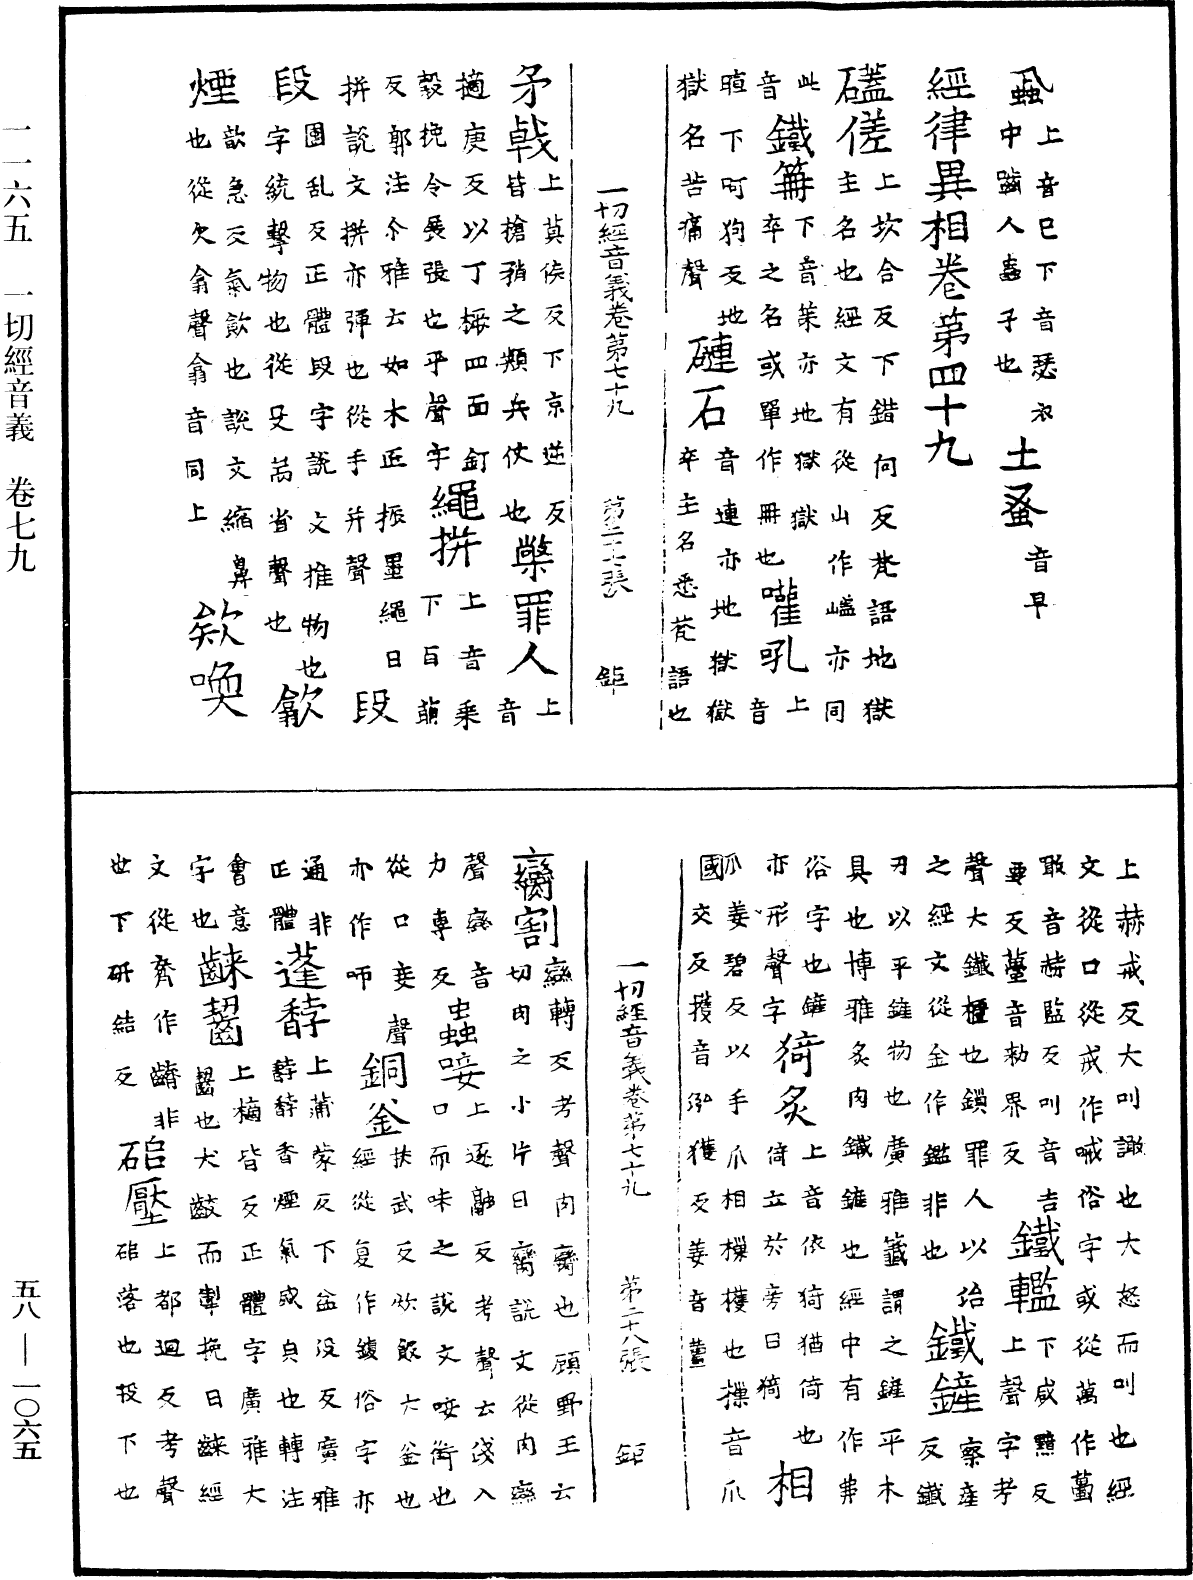 一一六五　一切經音義　卷七九
五八—一〇六五
蝨上音巳下音瑟衣
中齧人蟲子也　土蚤音早
經律異相卷第四十九
磕傞上坎合反下錯何反梵語地獄
主名也經文有從山作嵯亦同
此　鐵箳下音策亦地獄獄
音　卒之名或單作冊也　嚾吼上音
暄下呵狗反地　音連亦地獄獄
獄名苦痛聲　磏石卒主名悉梵語也
一切經音義卷第七十九　第二十七張　鉅
矛戟上莫侯反下京逆反
皆槍矟之類兵仗也　㯥罪人上音
擿庚反以丁橛四面釘　上音乘
㲉挽令展張也乎聲字　繩拼下百萠
反郭注尒雅云如木匠振墨繩曰
拼說文拼亦彈也從手并聲　段
段團乱反正體段字說文推物也
字統擊物也從殳耑省聲也　歙
歙急反氣歙也說文縮鼻
煙也從欠翕聲翕音同上　欸喚
上赫戒反大叫譀也大怒而叫也經
文從口從戒作喊俗字或從萬作𡃤
敢音𧹞監反叫音吉　下咸黤反
要反蠆音勑界反　鐵轞上聲字考
聲大鐵櫃也鎖罪人以治　察產
之經文從金作鑑非也　鐵鏟反鐵
刃以平鏟物也廣雅籤謂之鏟平木
具也博雅炙肉鐵鏟也經中有作弗
俗字也鏟上音依猗猶倚也
亦形聲字　猗炙倚立於旁曰猗　相
爪姜碧反以手爪相㩴㩴也㩴音爪
國交反㩴音𢎞獲反姜音薑
一切經音義卷第七十九　第二十八張　鉅
臠割臠轉反考聲肉臠也顧野王云
切肉之小片曰臠說文從肉䜌
聲䜌音　上逐融反考聲云淺入
力專反　蟲唼口而味之說文唼銜也
從口妾聲　扶武反炊飯大釜也
亦作啑　銅釜經從复作鍑俗字亦
通非　上蒲蒙反下盆沒反廣雅
正體　蓬馞馞馞香煙氣盛皃也轉注
會意　上楠皆反正體字廣雅大
字也　齰齧齧也犬齩而掣挽曰齰經
文從齊作齏非　上都迴反考聲
世下研結反　磓壓磓落也投下也